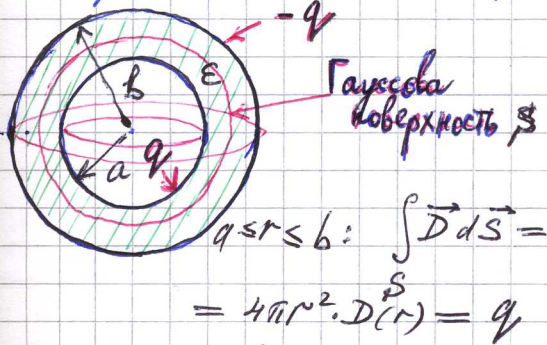 -q
ε
b
Гауссова
поверхность S
a
q
a≤r≤b: ∫ D⃗ dS⃗ =
S
= 4πr²·D(r) = q